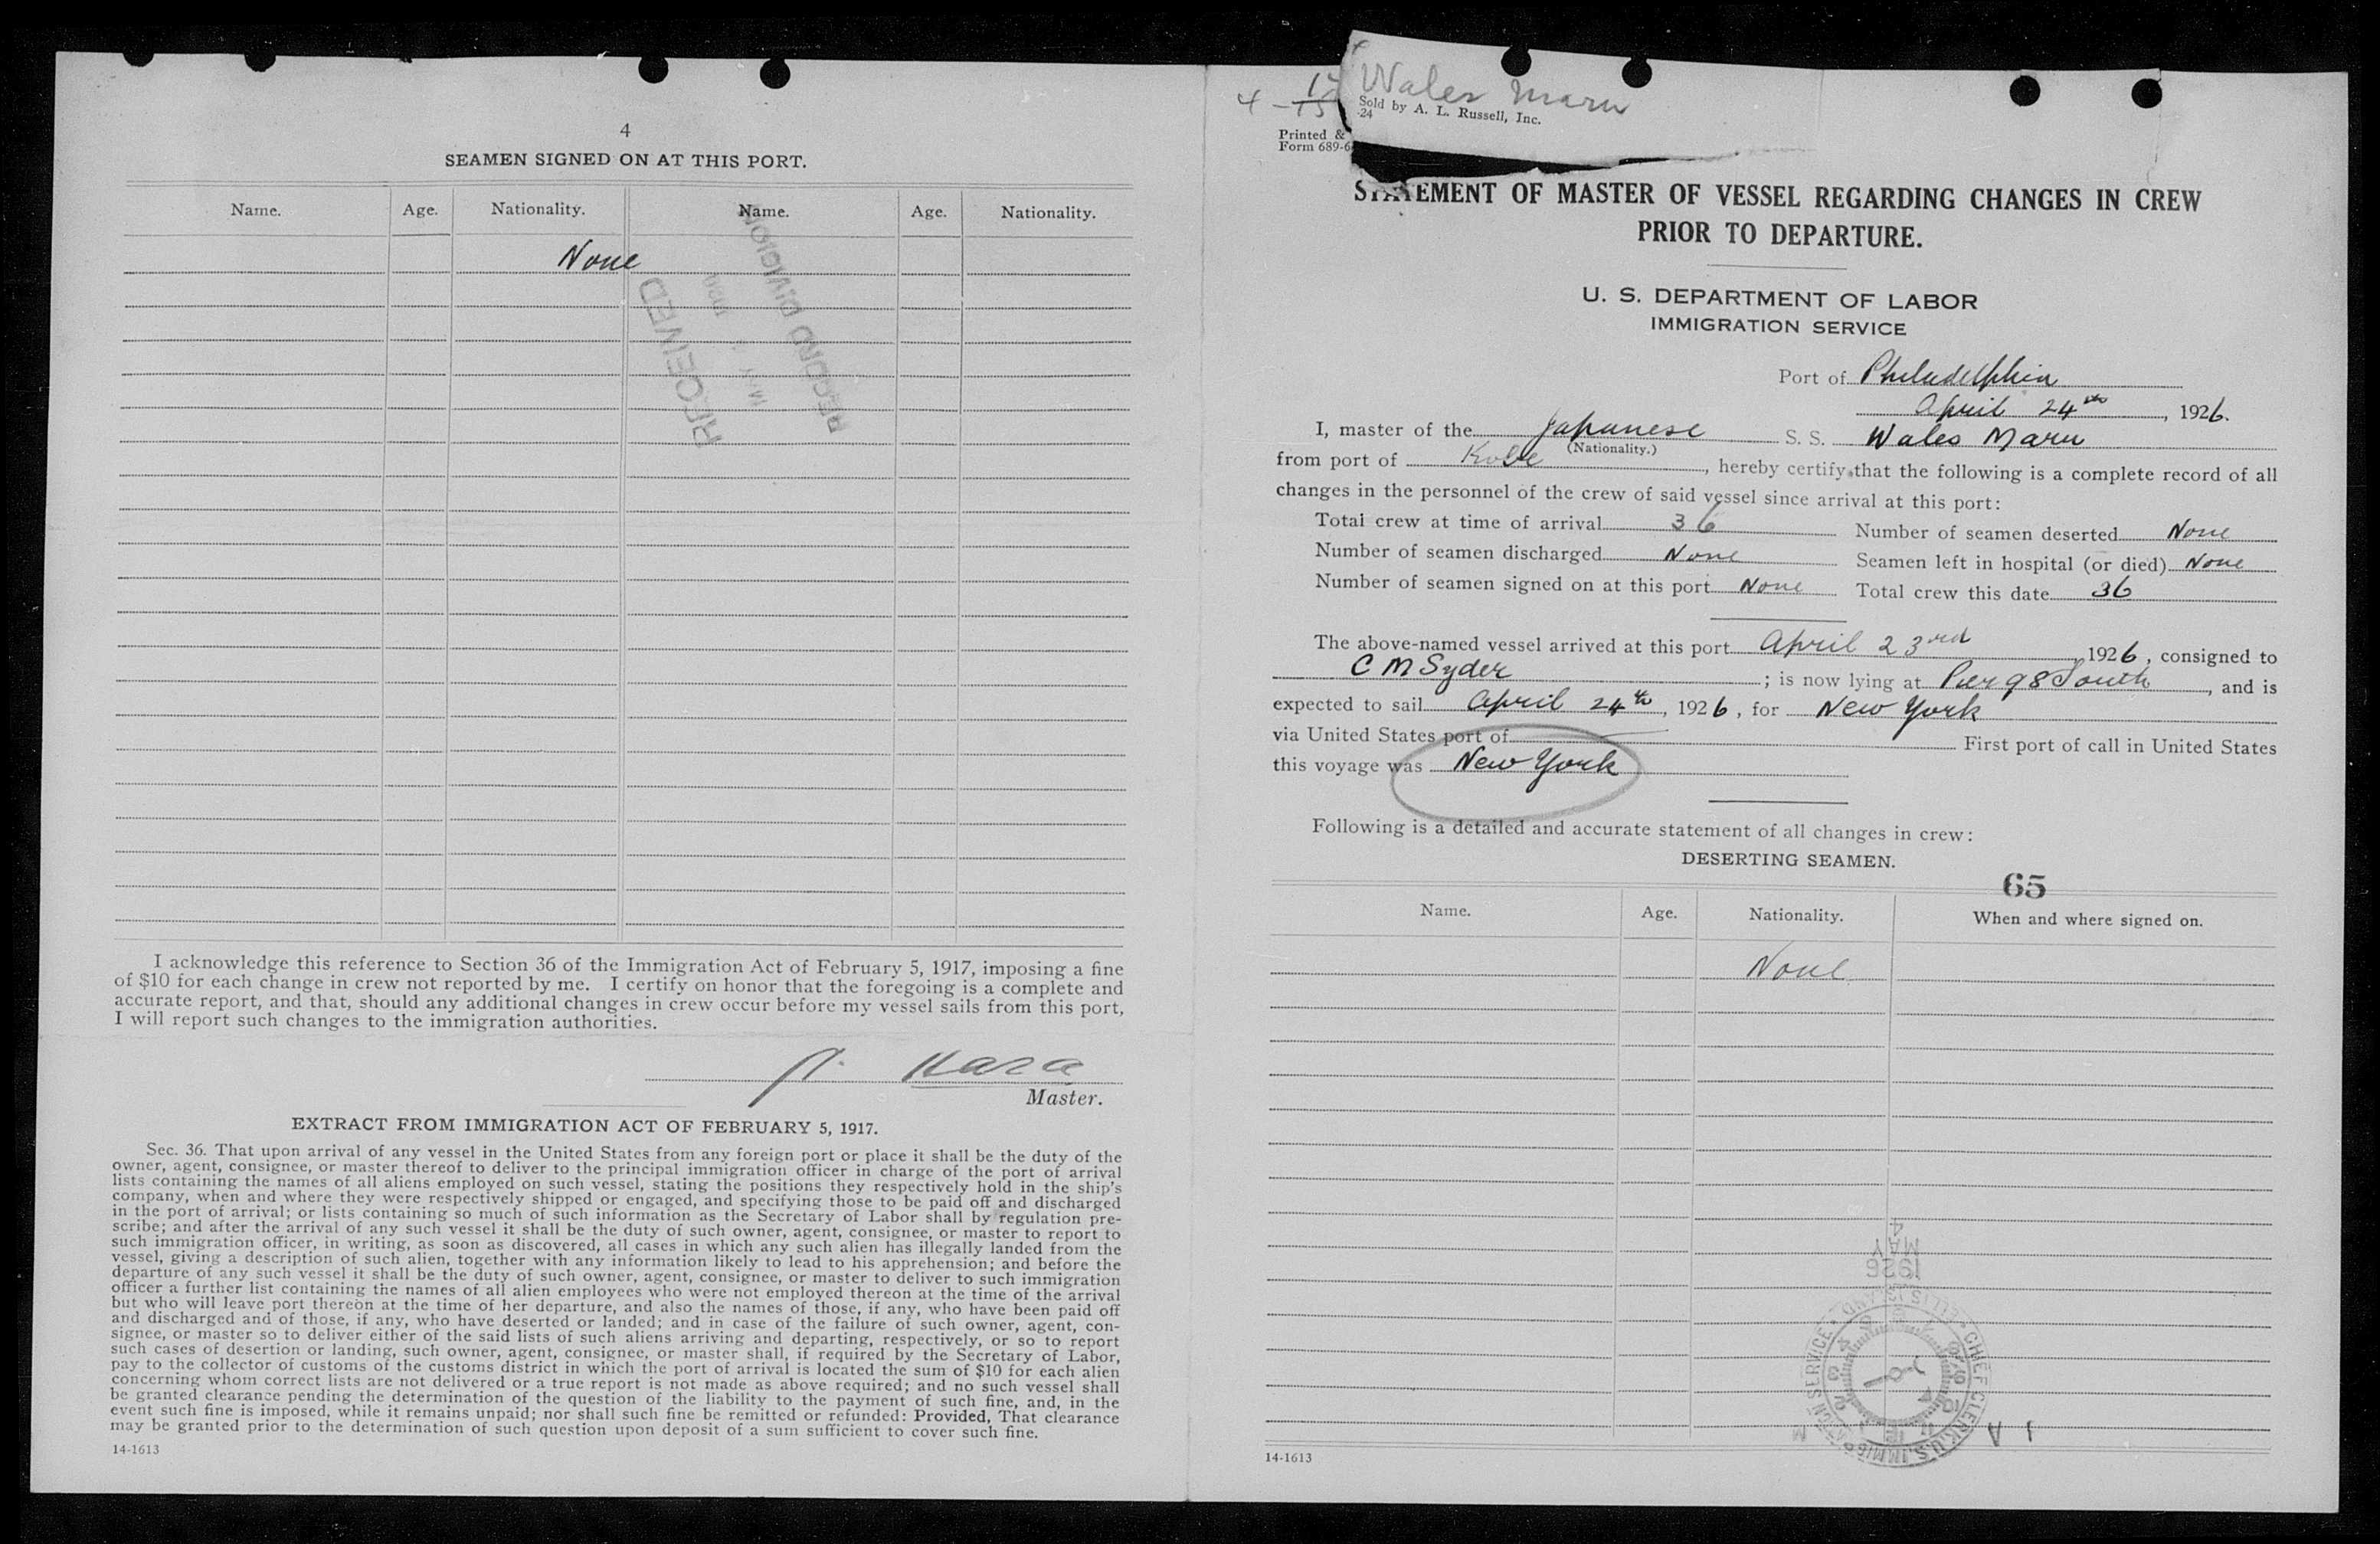 4
SEAMEN SIGNED ON AT THIS PORT.
Name. Age. Nationality. Name. Age. Nationality.
None
RECEIVED
MAY
RECORD DIVISION
I acknowledge this reference to Section 36 of the Immigration Act of February 5, 1917, imposing a fine
of $10 for each change in crew not reported by me. I certify on honor that the foregoing is a complete and
accurate report, and that, should any additional changes in crew occur before my vessel sails from this port,
I will report such changes to the immigration authorities.
Hara
Master.
EXTRACT FROM IMMIGRATION ACT OF FEBRUARY 5, 1917.
Sec. 36. That upon arrival of any vessel in the United States from any foreign port or place it shall be the duty of the
owner, agent, consignee, or master thereof to deliver to the principal immigration officer in charge of the port of arrival
lists containing the names of all aliens employed on such vessel, stating the positions they respectively hold in the ship's
company, when and where they were respectively shipped or engaged, and specifying those to be paid off and discharged
in the port of arrival; or lists containing so much of such information as the Secretary of Labor shall by regulation pre-
scribe; and after the arrival of any such vessel it shall be the duty of such owner, agent, consignee, or master to report to
such immigration officer, in writing, as soon as discovered, all cases in which any such alien has illegally landed from the
vessel, giving a description of such alien, together with any information likely to lead to his apprehension; and before the
departure of any such vessel it shall be the duty of such owner, agent, consignee, or master to deliver to such immigration
officer a further list containing the names of all alien employees who were not employed thereon at the time of the arrival
but who will leave port thereon at the time of her departure, and also the names of those, if any, who have been paid off
and discharged and of those, if any, who have deserted or landed; and in case of the failure of such owner, agent, con-
signee, or master so to deliver either of the said lists of such aliens arriving and departing, respectively, or so to report
such cases of desertion or landing, such owner, agent, consignee, or master shall, if required by the Secretary of Labor,
pay to the collector of customs of the customs district in which the port of arrival is located the sum of $10 for each alien
concerning whom correct lists are not delivered or a true report is not made as above required; and no such vessel shall
be granted clearance pending the determination of the question of the liability to the payment of such fine, and, in the
event such fine is imposed, while it remains unpaid; nor shall such fine be remitted or refunded: Provided, That clearance
may be granted prior to the determination of such question upon deposit of a sum sufficient to cover such fine.
14-1613
Wales Maru
Sold by A. L. Russell, Inc.
-24
Printed &
Form 689-6
STATEMENT OF MASTER OF VESSEL REGARDING CHANGES IN CREW
PRIOR TO DEPARTURE.
U. S. DEPARTMENT OF LABOR
IMMIGRATION SERVICE
Port of Philadelphia
April 24th, 1926.
I, master of the Japanese S. S. Wales Maru
(Nationality.)
from port of Kobe, hereby certify that the following is a complete record of all
changes in the personnel of the crew of said vessel since arrival at this port:
Total crew at time of arrival 36 Number of seamen deserted None
Number of seamen discharged None Seamen left in hospital (or died) None
Number of seamen signed on at this port None Total crew this date 36
The above-named vessel arrived at this port April 23rd 1926, consigned to
C M Syder; is now lying at Pier 98 South, and is
expected to sail April 24th, 1926, for New York
via United States port of — First port of call in United States
this voyage was New York
Following is a detailed and accurate statement of all changes in crew:
DESERTING SEAMEN.
65
Name. Age. Nationality. When and where signed on.
None
1926
MAY
4
CHIEF CLERK, U.S. IMMIGRATION SERVICE ELLIS ISLAND
14-1613